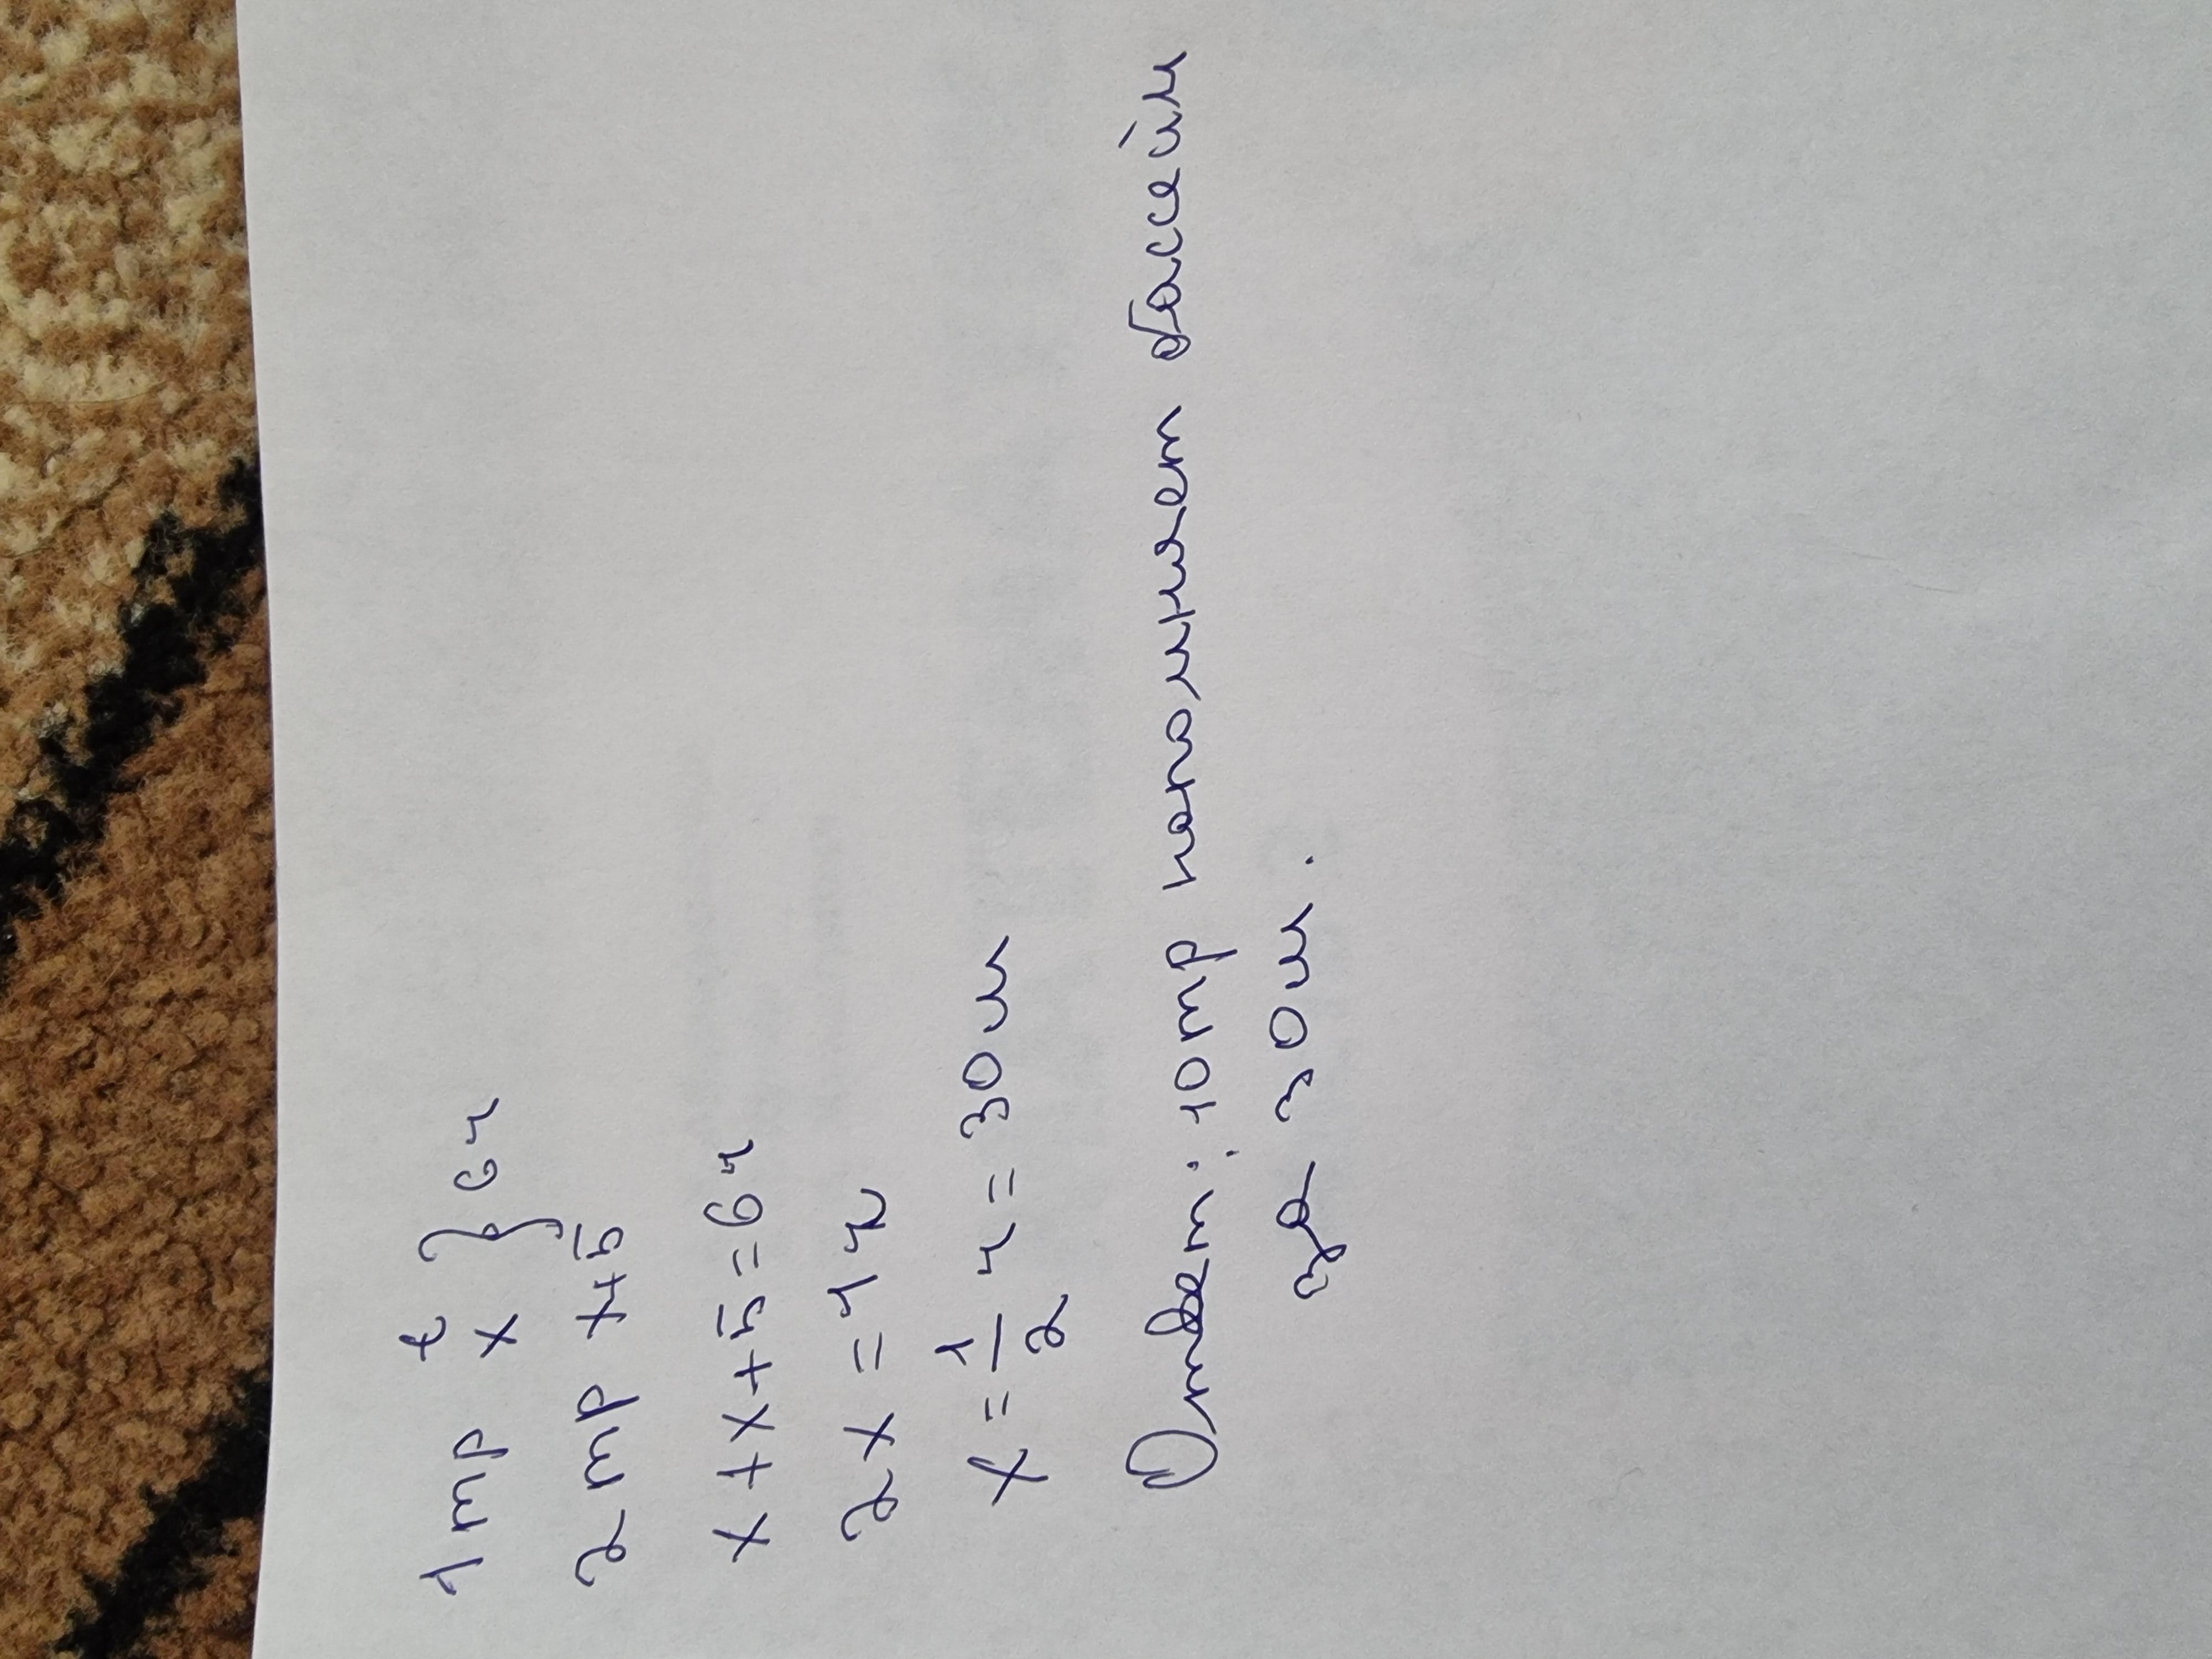 t
1 тр x } 6 ч
2 тр x+5
x + x + 5 = 6 ч
2x = 1 ч
x = 1/2 ч = 30 м
Ответ: 1 тр наполняет бассейн
за 30 м.